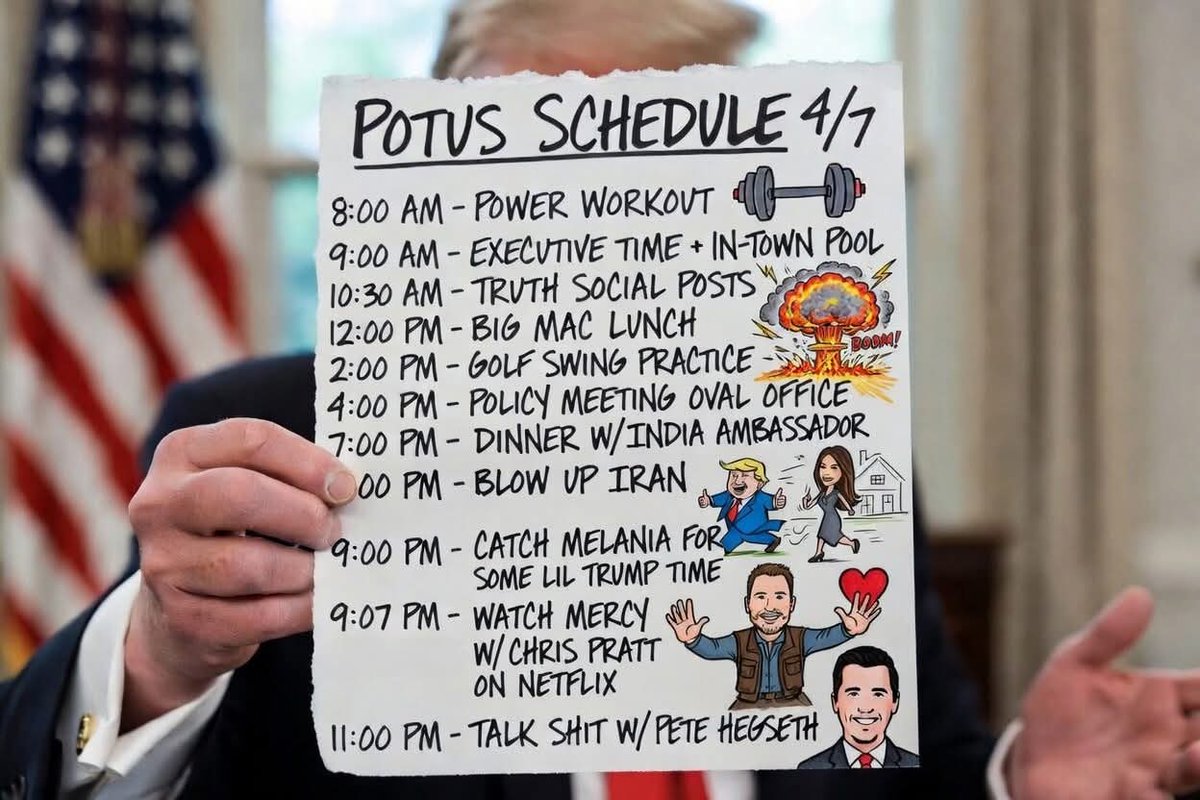 POTUS SCHEDULE 4/7
8:00 AM - POWER WORKOUT
9:00 AM - EXECUTIVE TIME + IN-TOWN POOL
10:30 AM - TRUTH SOCIAL POSTS
12:00 PM - BIG MAC LUNCH
BOOM!
2:00 PM - GOLF SWING PRACTICE
4:00 PM - POLICY MEETING OVAL OFFICE
7:00 PM - DINNER W/INDIA AMBASSADOR
:00 PM - BLOW UP IRAN
9:00 PM - CATCH MELANIA FOR
SOME LIL TRUMP TIME
9:07 PM - WATCH MERCY
W/CHRIS PRATT
ON NETFLIX
11:00 PM - TALK SHIT W/PETE HEGSETH